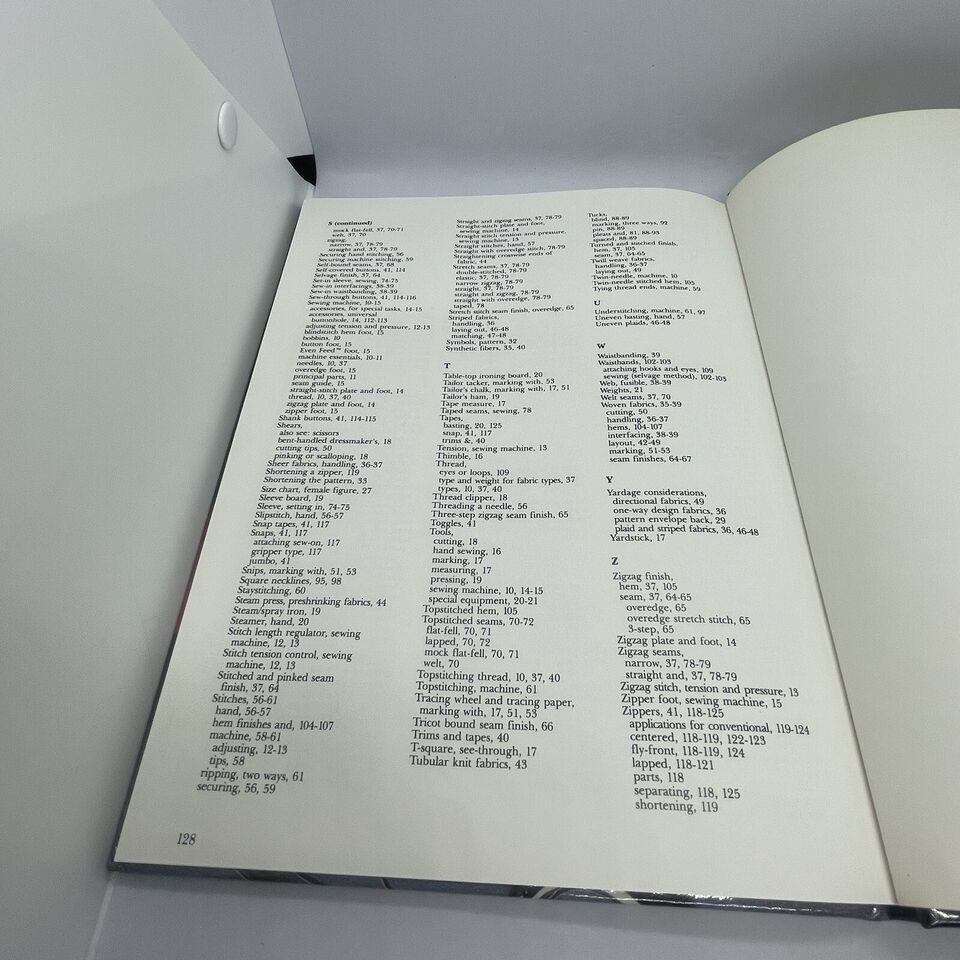 S (continued)
mock flat-fell, 37, 70-71
welt, 37, 70
zigzag,
narrow, 37, 78-79
straight and, 37, 78-79
Securing hand stitching, 56
Securing machine stitching, 59
Self-bound seams, 37, 68
Self-covered buttons, 41, 114
Selvage finish, 37, 64
Set-in sleeve, sewing, 74-75
Sew-in interfacings, 38-39
Sew-in waistbanding, 38-39
Sew-through buttons, 41, 114-116
Sewing machine, 10-15
accessories, for special tasks, 14-15
accessories, universal
buttonhole, 14, 112-113
adjusting tension and pressure, 12-13
blindstitch hem foot, 15
bobbins, 10
button foot, 15
Even Feed™ foot, 15
machine essentials, 10-11
needles, 10, 37
overedge foot, 15
principal parts, 11
seam guide, 15
straight-stitch plate and foot, 14
thread, 10, 37, 40
zigzag plate and foot, 14
zipper foot, 15
Shank buttons, 41, 114-115
Shears,
also see: scissors
bent-handled dressmaker's, 18
cutting tips, 50
pinking or scalloping, 18
Sheer fabrics, handling, 36-37
Shortening a zipper, 119
Shortening the pattern, 33
Size chart, female figure, 27
Sleeve board, 19
Sleeve, setting in, 74-75
Slipstitch, hand, 56-57
Snap tapes, 41, 117
Snaps, 41, 117
attaching sew-on, 117
gripper type, 117
jumbo, 41
Snips, marking with, 51, 53
Square necklines, 95, 98
Staystitching, 60
Steam press, preshrinking fabrics, 44
Steam/spray iron, 19
Steamer, hand, 20
Stitch length regulator, sewing
machine, 12, 13
Stitch tension control, sewing
machine, 12, 13
Stitched and pinked seam
finish, 37, 64
Stitches, 56-61
hand, 56-57
hem finishes and, 104-107
machine, 58-61
adjusting, 12-13
tips, 58
ripping, two ways, 61
securing, 56, 59
Straight and zigzag seams, 37, 78-79
Straight-stitch plate and foot,
sewing machine, 14
Straight stitch tension and pressure,
sewing machine, 13
Straight stitches, hand, 57
Straight with overedge stitch, 78-79
Straightening crosswise ends of
fabric, 44
Stretch seams, 37, 78-79
double-stitched, 78-79
elastic, 37, 78-79
narrow zigzag, 78-79
straight, 37, 78-79
straight and zigzag, 78-79
straight with overedge, 78-79
taped, 78
Stretch stitch seam finish, overedge, 65
Striped fabrics,
handling, 36
laying out, 46-48
matching, 47-48
Symbols, pattern, 32
Synthetic fibers, 35, 40
T
Table-top ironing board, 20
Tailor tacker, marking with, 53
Tailor's chalk, marking with, 17, 51
Tailor's ham, 19
Tape measure, 17
Taped seams, sewing, 78
Tapes,
basting, 20, 125
snap, 41, 117
trims &, 40
Tension, sewing machine, 13
Thimble, 16
Thread,
eyes or loops, 109
type and weight for fabric types, 37
types, 10, 37, 40
Thread clipper, 18
Threading a needle, 56
Three-step zigzag seam finish, 65
Toggles, 41
Tools,
cutting, 18
hand sewing, 16
marking, 17
measuring, 17
pressing, 19
sewing machine, 10, 14-15
special equipment, 20-21
Topstitched hem, 105
Topstitched seams, 70-72
flat-fell, 70, 71
lapped, 70, 72
mock flat-fell, 70, 71
welt, 70
Topstitching thread, 10, 37, 40
Topstitching, machine, 61
Tracing wheel and tracing paper,
marking with, 17, 51, 53
Tricot bound seam finish, 66
Trims and tapes, 40
T-square, see-through, 17
Tubular knit fabrics, 43
Tucks,
blind, 88-89
marking, three ways, 92
pin, 88-89
pleats and, 81, 88-93
spaced, 88-89
Turned and stitched finish,
hem, 37, 105
seam, 37, 64-65
Twill weave fabrics,
handling, 36-37
laying out, 49
Twin-needle, machine, 10
Twin-needle stitched hem, 105
Tying thread ends, machine, 59
U
Understitching, machine, 61, 97
Uneven basting, hand, 57
Uneven plaids, 46-48
W
Waistbanding, 39
Waistbands, 102-103
attaching hooks and eyes, 109
sewing (selvage method), 102-103
Web, fusible, 38-39
Weights, 21
Welt seams, 37, 70
Woven fabrics, 35-39
cutting, 50
handling, 36-37
hems, 104-107
interfacing, 38-39
layout, 42-49
marking, 51-53
seam finishes, 64-67
Y
Yardage considerations,
directional fabrics, 49
one-way design fabrics, 36
pattern envelope back, 29
plaid and striped fabrics, 36, 46-48
Yardstick, 17
Z
Zigzag finish,
hem, 37, 105
seam, 37, 64-65
overedge, 65
overedge stretch stitch, 65
3-step, 65
Zigzag plate and foot, 14
Zigzag seams,
narrow, 37, 78-79
straight and, 37, 78-79
Zigzag stitch, tension and pressure, 13
Zipper foot, sewing machine, 15
Zippers, 41, 118-125
applications for conventional, 119-124
centered, 118-119, 122-123
fly-front, 118-119, 124
lapped, 118-121
parts, 118
separating, 118, 125
shortening, 119
128